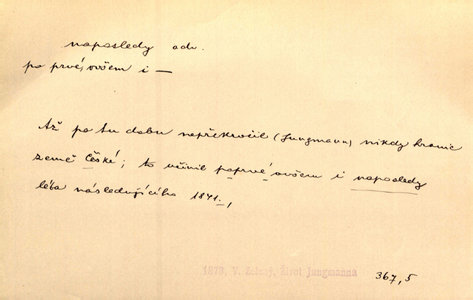 naposledy adv.
po prvé, ovšem i —
Až po tu dobu nepřekročil (Jungmann) nikdy hranic
země České; to učinil poprvé ovšem i naposledy
léta následujícího 1841.,
1873, V. Zelený, Život Jungmanna
367,5